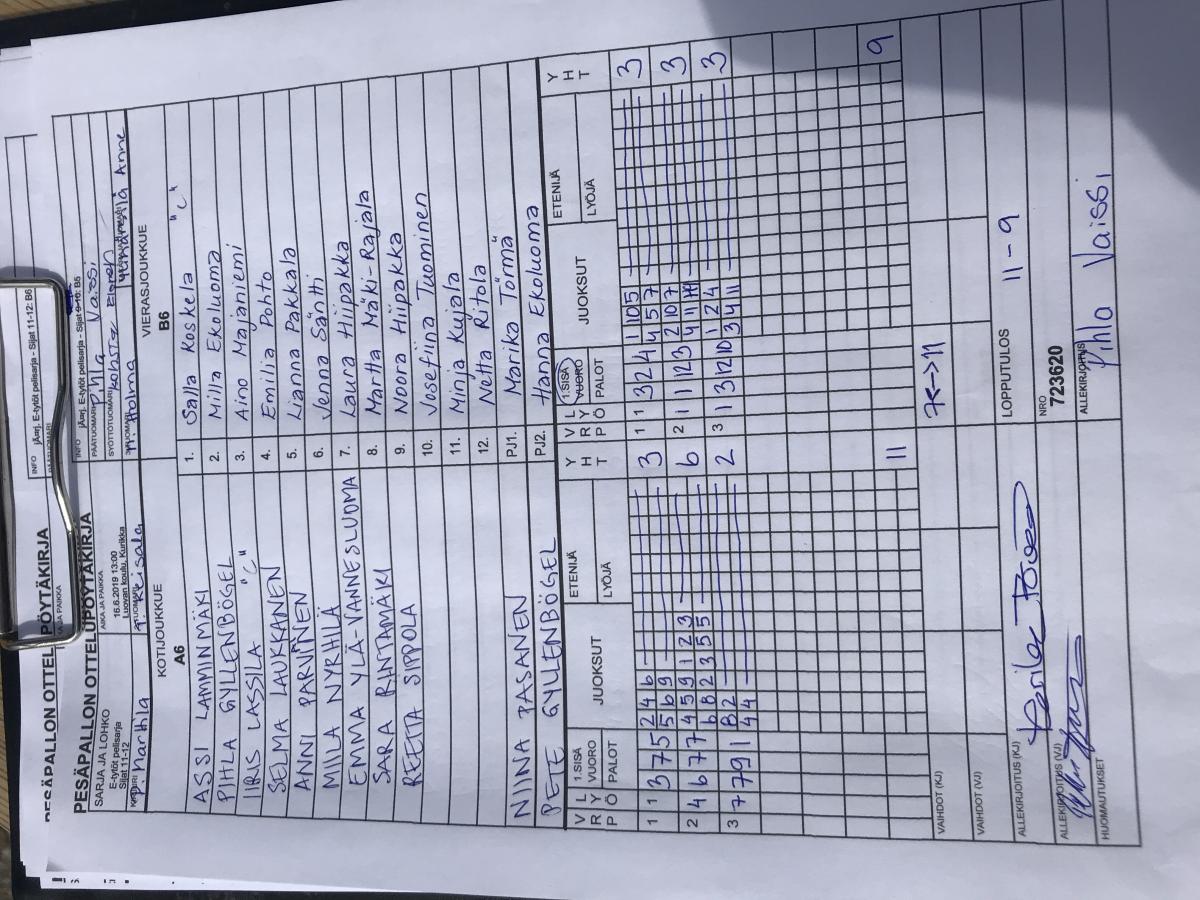 PESÄPALLON OTTELUPÖYTÄKIRJA
SARJA JA LOHKO
E-tytöt pelisarja
Sijat 11-12
AIKA JA PAIKKA
16.6.2019 13:00
Luovan koulu, Kurikka
INFO jAmj. E-tytöt pelisarja - Sijat 11-12: B6
PÄÄTUOMARI Pihla Vaissi
SYÖTTÖTUOMARI
P. Harttila
Holma
Anne
KOTIJOUKKUE
A6
ASSI LAMMINMÄKI
PIHLA GYLLENBÖGEL
IIRIS LASSILA "C"
SELMA LAUKKANEN
ANNI PARVINEN
MILA NYRHILÄ
EMMA YLÄ-VANNESLUOMA
SARA RINTAMÄKI
REETTA SIPPOLA
NIINA PASANEN
PETE GYLLENBÖGEL
VIERASJOUKKUE
B6
1. Salla Koskela "C"
2. Milla Ekoluoma
3. Aino Majaniemi
4. Emilia Pohto
5. Lianna Pakkala
6. Venna Säntti
7. Laura Hiipakka
8. Martta Mäki-Rajala
9. Noora Hiipakka
10. Josefiina Tuominen
11. Minja Kujala
12. Netta Ritola
PJ1. Marika Törmä
PJ2. Hanna Ekoluoma
VRP LYÖ 1.SISÄ VUORO PALOT JUOKSUT ETENIJÄ LYÖJÄ YHT
1 1 3 7 5 2 4 6 3
5 6 9
2 4 6 7 7 4 5 9 1 2 3 6
6 8 2 3 5 5
3 7 7 9 1 8 2 2
4 4
11
VRP LYÖ 1.SISÄ VUORO PALOT JUOKSUT ETENIJÄ LYÖJÄ YHT
1 1 3 2 4 1 10 5 3
4 5 7
2 1 1 12 3 2 10 7 3
4 11
3 1 3 12 10 1 2 4 3
3 4 11
9
VAIHDOT (KJ) 7<->11
VAIHDOT (VJ)
ALLEKIRJOITUS (KJ)
LOPPUTULOS 11-9
ALLEKIRJOITUS (VJ)
NRO
723620
HUOMAUTUKSET
ALLEKIRJOITUS
Pihla Vaissi